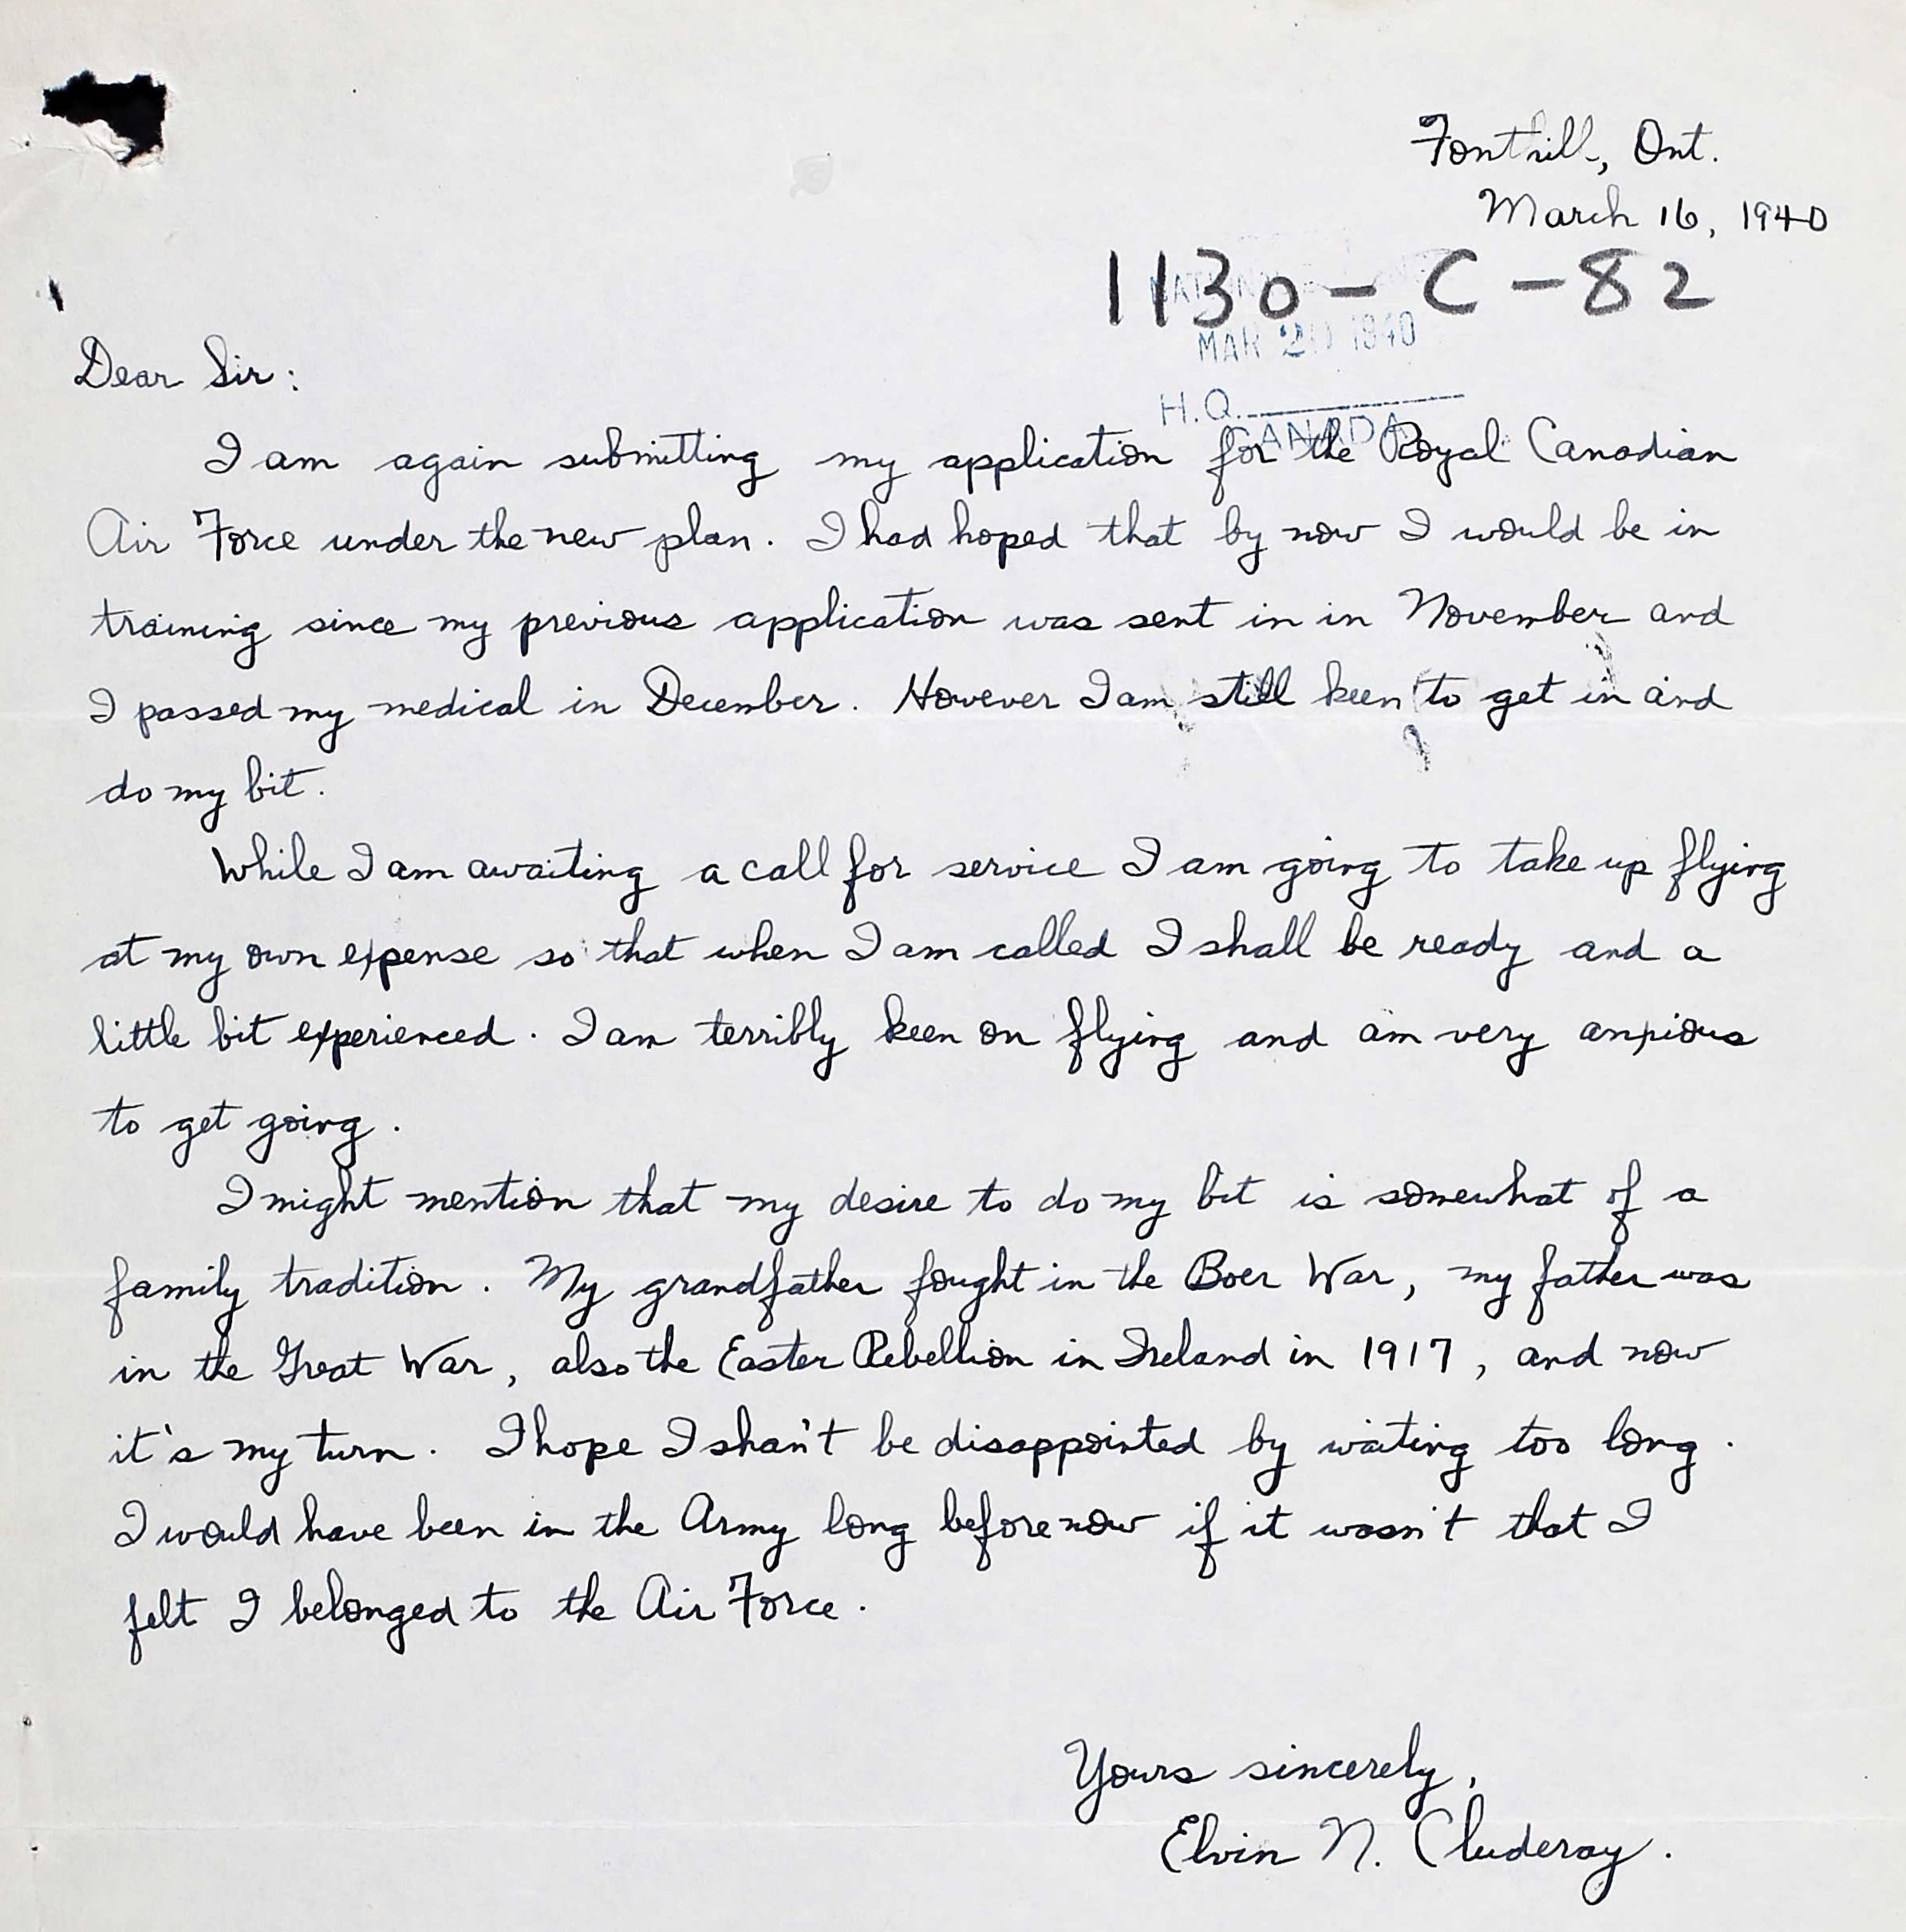 Fonthill, Ont.
March 16, 1940
1130-C-82
MAR 20 1940
H.Q.
CANADA
Dear Sir:
I am again submitting my application for the Royal Canadian
Air Force under the new plan. I had hoped that by now I would be in
training since my previous application was sent in in November and
I passed my medical in December. However I am still keen to get in and
do my bit.
While I am awaiting a call for service I am going to take up flying
at my own expense so that when I am called I shall be ready and a
little bit experienced. I am terribly keen on flying and am very anxious
to get going.
I might mention that my desire to do my bit is somewhat of a
family tradition. My grandfather fought in the Boer War, my father was
in the Great War, also the Easter Rebellion in Ireland in 1917, and now
it's my turn. I hope I shan't be disappointed by waiting too long.
I would have been in the Army long before now if it wasn't that I
felt I belonged to the Air Force.
Yours sincerely,
Elvin N. Cluderay.